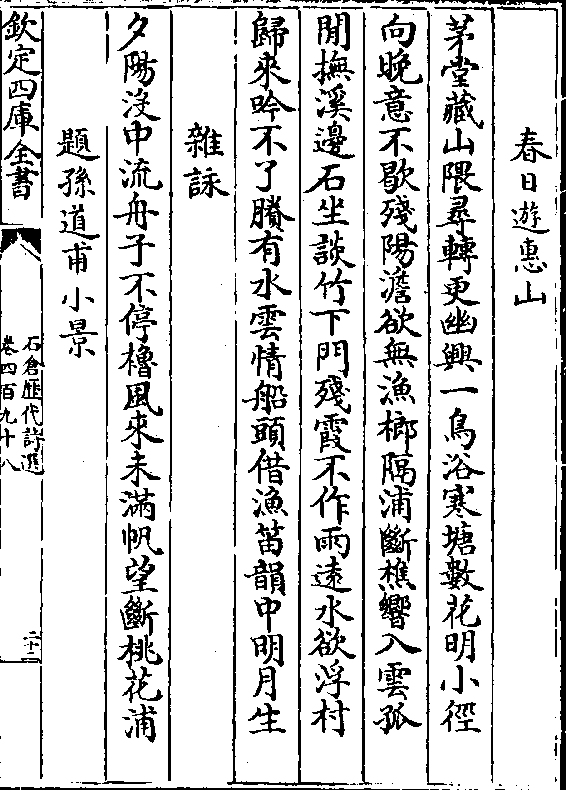 春日遊惠山
茅堂藏山隈尋轉更幽興一鳥浴寒塘數花明小徑
向晚意不歇殘陽澹欲無漁榔隔浦斷樵響入雲孤
閒撫溪邊石坐談竹下門殘霞不作雨遠水欲浮村
歸來吟不了賸有水雲情船頭借漁笛韻中明月生
雜詠
夕陽沒中流舟子不停櫓風來未滿帆望斷桃花浦
題孫道甫小景
欽定四庫全書
石倉歷代詩選
卷四百九十八
二十二